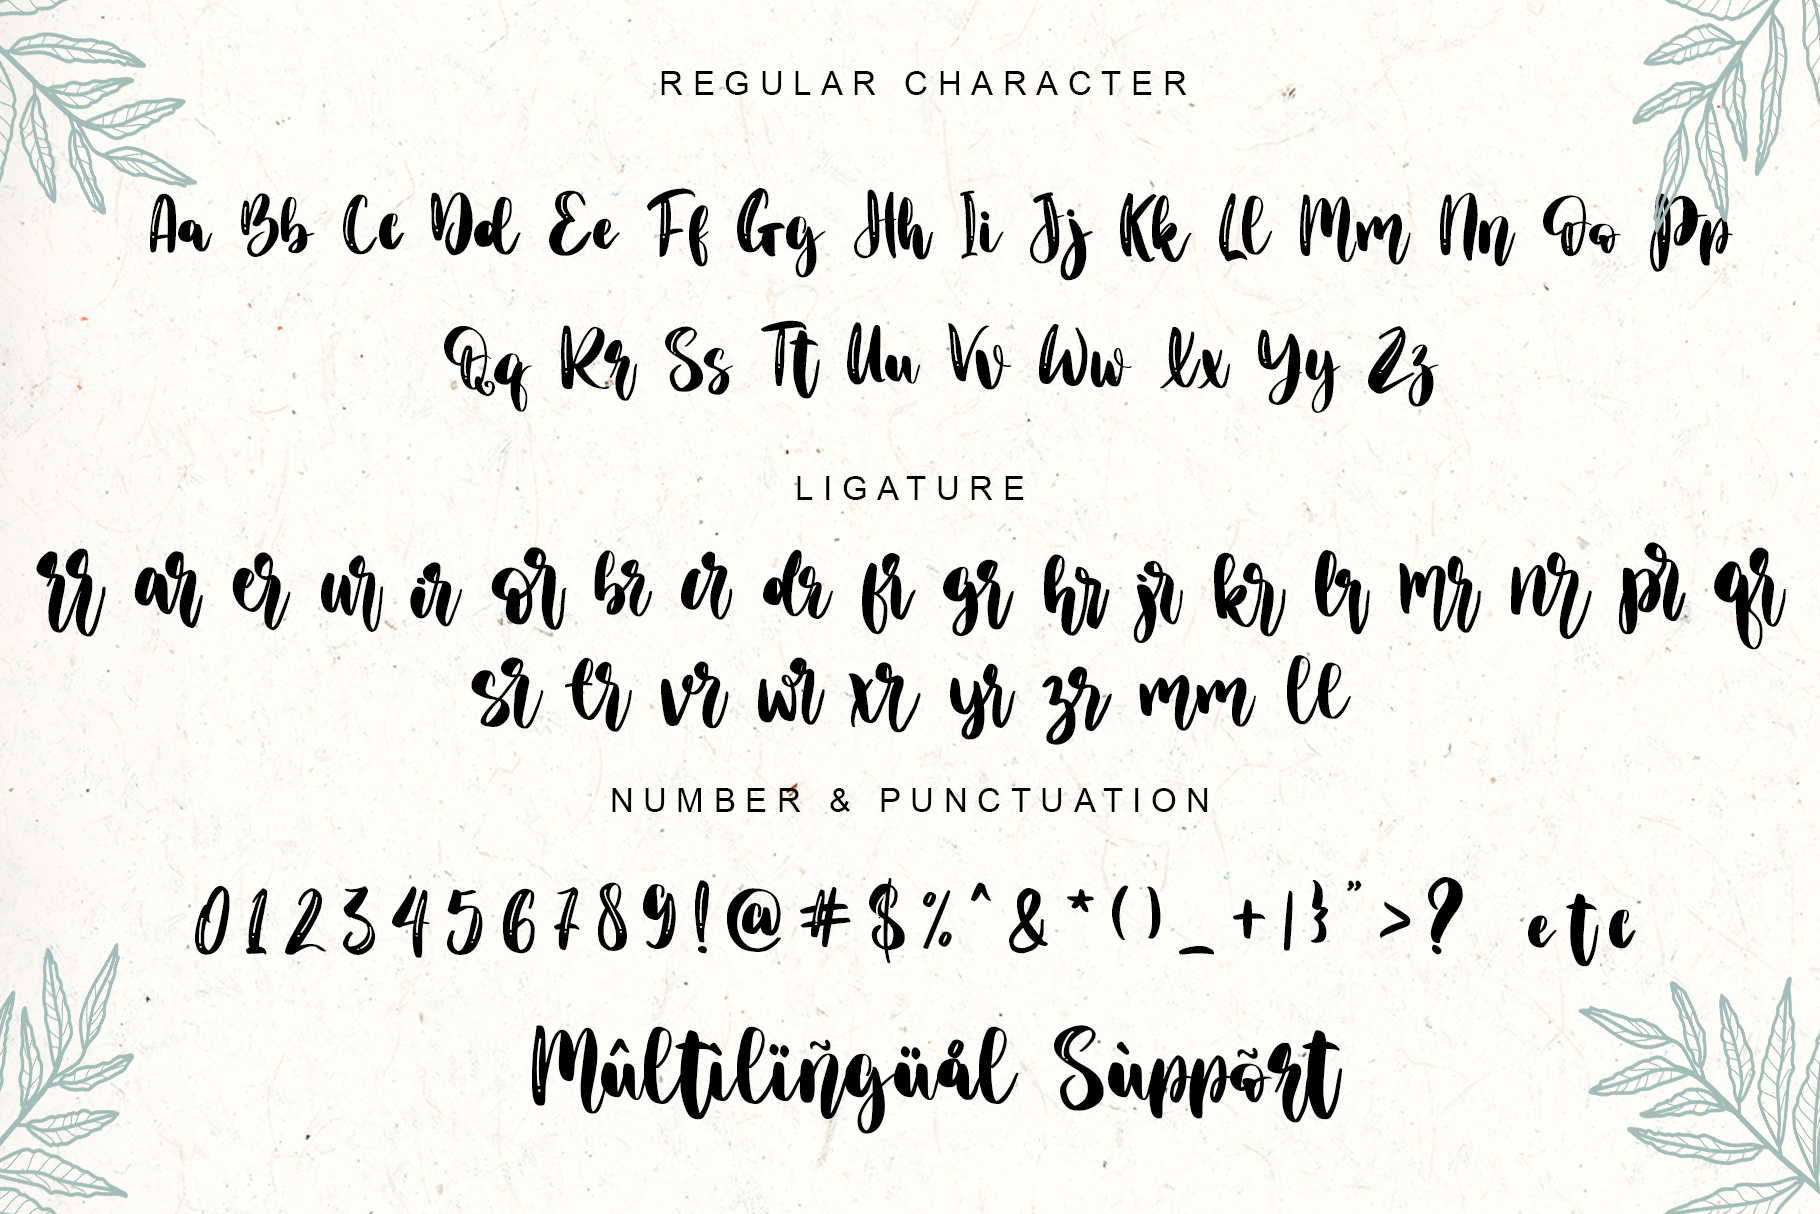 REGULAR CHARACTER
Aa Bb Cc Dd Ee Ff Gg Hh Ii Jj Kk Ll Mm Nn Oo Pp
Qq Rr Ss Tt Uu Vv Ww Xx Yy Zz
LIGATURE
rr ar er ur ir or br cr dr fr gr hr jr kr lr mr nr pr qr
sr tr vr wr xr yr zr mm ll
NUMBER & PUNCTUATION
0 1 2 3 4 5 6 7 8 9 ! @ # $ % ^ & * ( ) _ + | } " > ? etc
Mûltìlïñgüål Sùppõrt